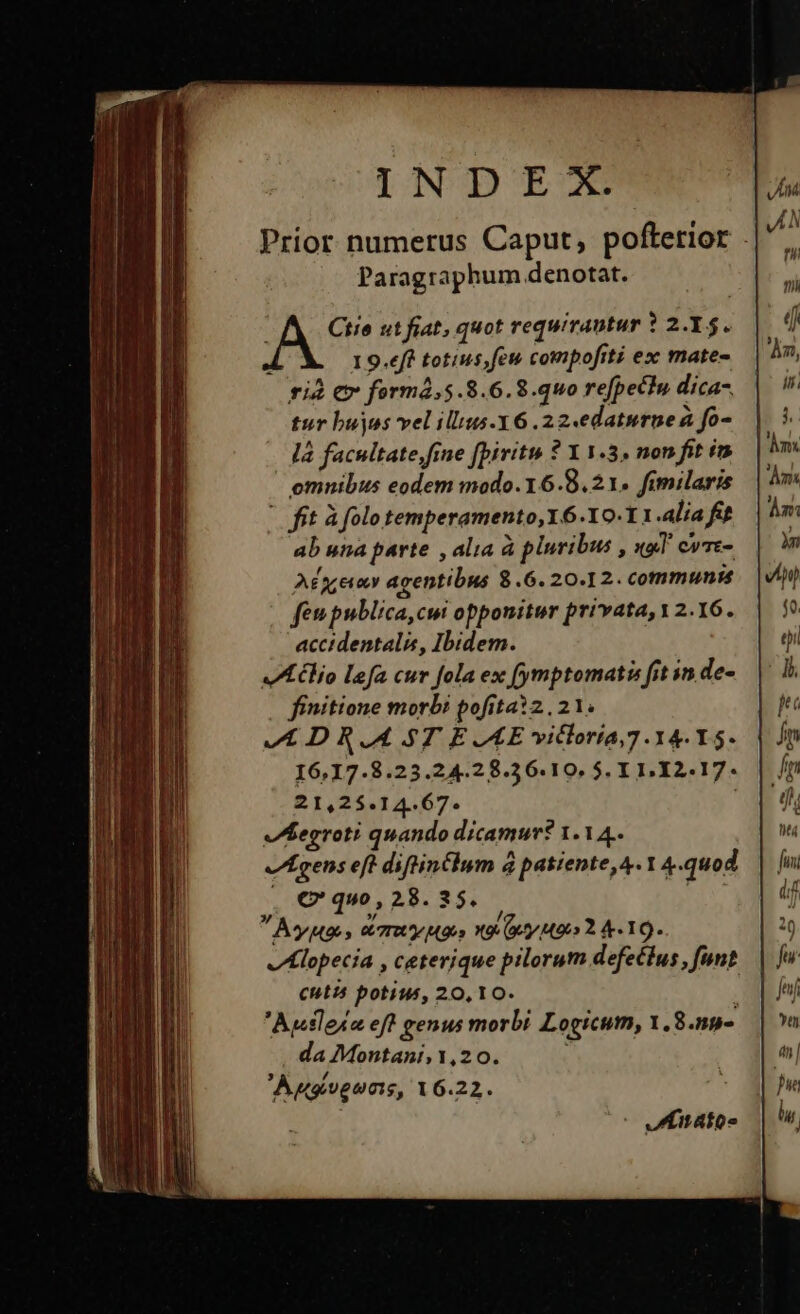 INDEX.
Prior numerus Caput, poſterior
Paragraphum denotat.
ACtio ut fiat, quot requirantur? 2.15.
19. eſt totius, ſeu compoſiti ex mate-
riâ & formâ, 5.8.6.8. quo reſpectu dica-
tur hujus vel illius. 16.22. edaturne à ſo-
lâ facultate, ſine ſpiritu? 11.3. non fit in
omnibus eodem modo. 16.8.21. ſimilaris
fit à ſolo temperamento, 16.10.11. alia fit
ab una parte, alia à pluribus, κατ'
agentibus 8.6.20.12. communis
ſeu publica, cui opponitur privata, 12.16.
accidentalis, Ibidem.
Actio læſa cur ſola ex ſymptomatis fit in de-
finitione morbi poſita? 2.21.
ADRASTEAE victoria, 7.14.15.
16,17.8.23.24.28.36.10.5.11.12.17.
21,25.14.67.
Aegroti quando dicamur? 1.14.
Agens eſt diſtinctum à patiente, 4.14. quod
& quo, 28.35.
24.19.
Alopecia, cæterique pilorum defectus, ſunt
cutis potius, 20,10.
eſt genus morbi Logicum, 1.8. nu-
da Montani, 1,20.
16.22.
Anato-